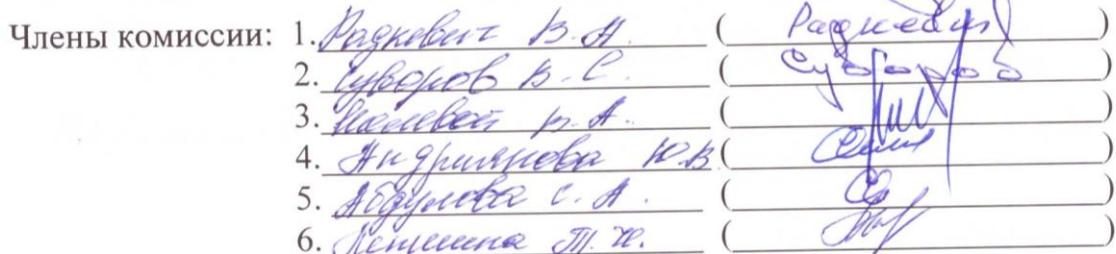 Члены комиссии: 1. Радкевич В.А. ( Радкевич )
2. Суворов В.С. ( Суворов )
3. В.А. ( )
4. Андриянова Ю.В ( )
5. Абдулова С.А. ( )
6. Т.Н. ( )